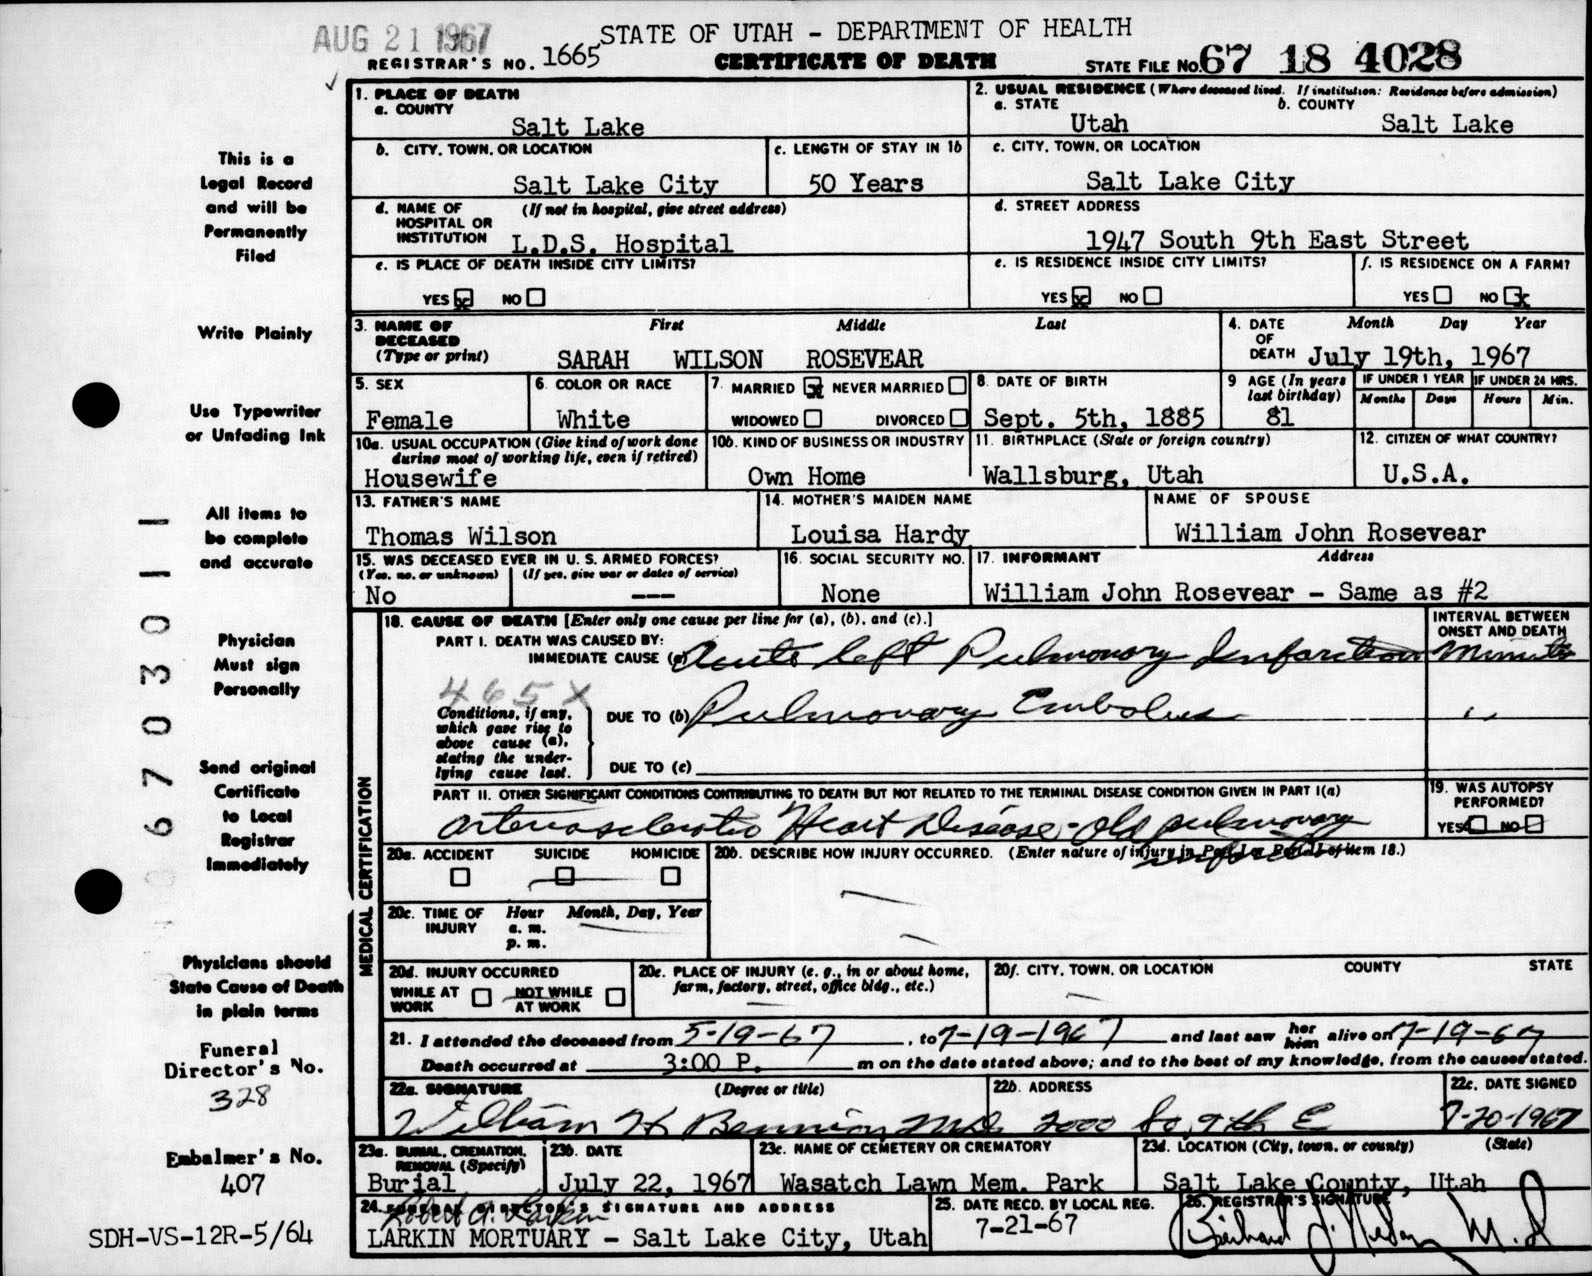 AUG 21 1967
STATE OF UTAH - DEPARTMENT OF HEALTH
REGISTRAR'S NO. 1665 CERTIFICATE OF DEATH STATE FILE NO. 67 18 4028
This is a
Legal Record
and will be
Permanently
Filed
Write Plainly
Use Typewriter
or Unfading Ink
All items to
be complete
and accurate
Physician
Must sign
Personally
Send original
Certificate
to Local
Registrar
Immediately
Physicians should
State Cause of Death
in plain terms
Funeral
Director's No.
328
Embalmer's No.
407
SDH-VS-12R-5/64
67030
1. PLACE OF DEATH
a. COUNTY
Salt Lake
2. USUAL RESIDENCE (Where deceased lived. If institution: Residence before admission)
a. STATE b. COUNTY
Utah Salt Lake
b. CITY, TOWN, OR LOCATION
Salt Lake City
c. LENGTH OF STAY IN 1b
50 Years
c. CITY, TOWN, OR LOCATION
Salt Lake City
d. NAME OF (If not in hospital, give street address)
HOSPITAL OR
INSTITUTION L.D.S. Hospital
d. STREET ADDRESS
1947 South 9th East Street
e. IS PLACE OF DEATH INSIDE CITY LIMITS?
YES x NO
e. IS RESIDENCE INSIDE CITY LIMITS?
YES x NO
f. IS RESIDENCE ON A FARM?
YES NO x
3. NAME OF First Middle Last
DECEASED
(Type or print) SARAH WILSON ROSEVEAR
4. DATE Month Day Year
OF
DEATH July 19th, 1967
5. SEX
Female
6. COLOR OR RACE
White
7. MARRIED x NEVER MARRIED
WIDOWED DIVORCED
8. DATE OF BIRTH
Sept. 5th, 1885
9 AGE (In years
last birthday)
81
IF UNDER 1 YEAR
Months Days
IF UNDER 24 HRS.
Hours Min.
10a. USUAL OCCUPATION (Give kind of work done
during most of working life, even if retired)
Housewife
10b. KIND OF BUSINESS OR INDUSTRY
Own Home
11. BIRTHPLACE (State or foreign country)
Wallsburg, Utah
12. CITIZEN OF WHAT COUNTRY?
U.S.A.
13. FATHER'S NAME
Thomas Wilson
14. MOTHER'S MAIDEN NAME
Louisa Hardy
NAME OF SPOUSE
William John Rosevear
15. WAS DECEASED EVER IN U. S. ARMED FORCES?
(Yes, no, or unknown) (If yes, give war or dates of service)
No ---
16. SOCIAL SECURITY NO.
None
17. INFORMANT Address
William John Rosevear - Same as #2
MEDICAL CERTIFICATION
18. CAUSE OF DEATH [Enter only one cause per line for (a), (b), and (c).]
INTERVAL BETWEEN
ONSET AND DEATH
PART I. DEATH WAS CAUSED BY:
IMMEDIATE CAUSE (a) Acute left Pulmonary Infarction Minutes
465X
Conditions, if any,
which gave rise to
above cause (a),
stating the under-
lying cause last.
DUE TO (b) Pulmonary Embolus "
DUE TO (c)
PART II. OTHER SIGNIFICANT CONDITIONS CONTRIBUTING TO DEATH BUT NOT RELATED TO THE TERMINAL DISEASE CONDITION GIVEN IN PART I(a)
Arteriosclerotic Heart Disease - old pulmonary
infarction
19. WAS AUTOPSY
PERFORMED?
YES NO
20a. ACCIDENT SUICIDE HOMICIDE
20b. DESCRIBE HOW INJURY OCCURRED. (Enter nature of injury in Part I or Part II of item 18.)
20c. TIME OF Hour Month, Day, Year
INJURY a. m.
p. m.
20d. INJURY OCCURRED
WHILE AT NOT WHILE
WORK AT WORK
20e. PLACE OF INJURY (e. g., in or about home,
farm, factory, street, office bldg., etc.)
20f. CITY, TOWN, OR LOCATION COUNTY STATE
21. I attended the deceased from 5-19-67, to 7-19-1967 and last saw her him alive on 7-19-67
Death occurred at 3:00 P. m on the date stated above; and to the best of my knowledge, from the causes stated.
22a. SIGNATURE (Degree or title)
William H Bennion MD
22b. ADDRESS
2000 So 9th E
22c. DATE SIGNED
7-20-1967
23a. BURIAL, CREMATION,
REMOVAL (Specify)
Burial
23b. DATE
July 22, 1967
23c. NAME OF CEMETERY OR CREMATORY
Wasatch Lawn Mem. Park
23d. LOCATION (City, town, or county) (State)
Salt Lake County, Utah
24. FUNERAL DIRECTOR'S SIGNATURE AND ADDRESS
Robert A. Larkin
LARKIN MORTUARY - Salt Lake City, Utah
25. DATE RECD. BY LOCAL REG.
7-21-67
26. REGISTRAR'S SIGNATURE
M.D